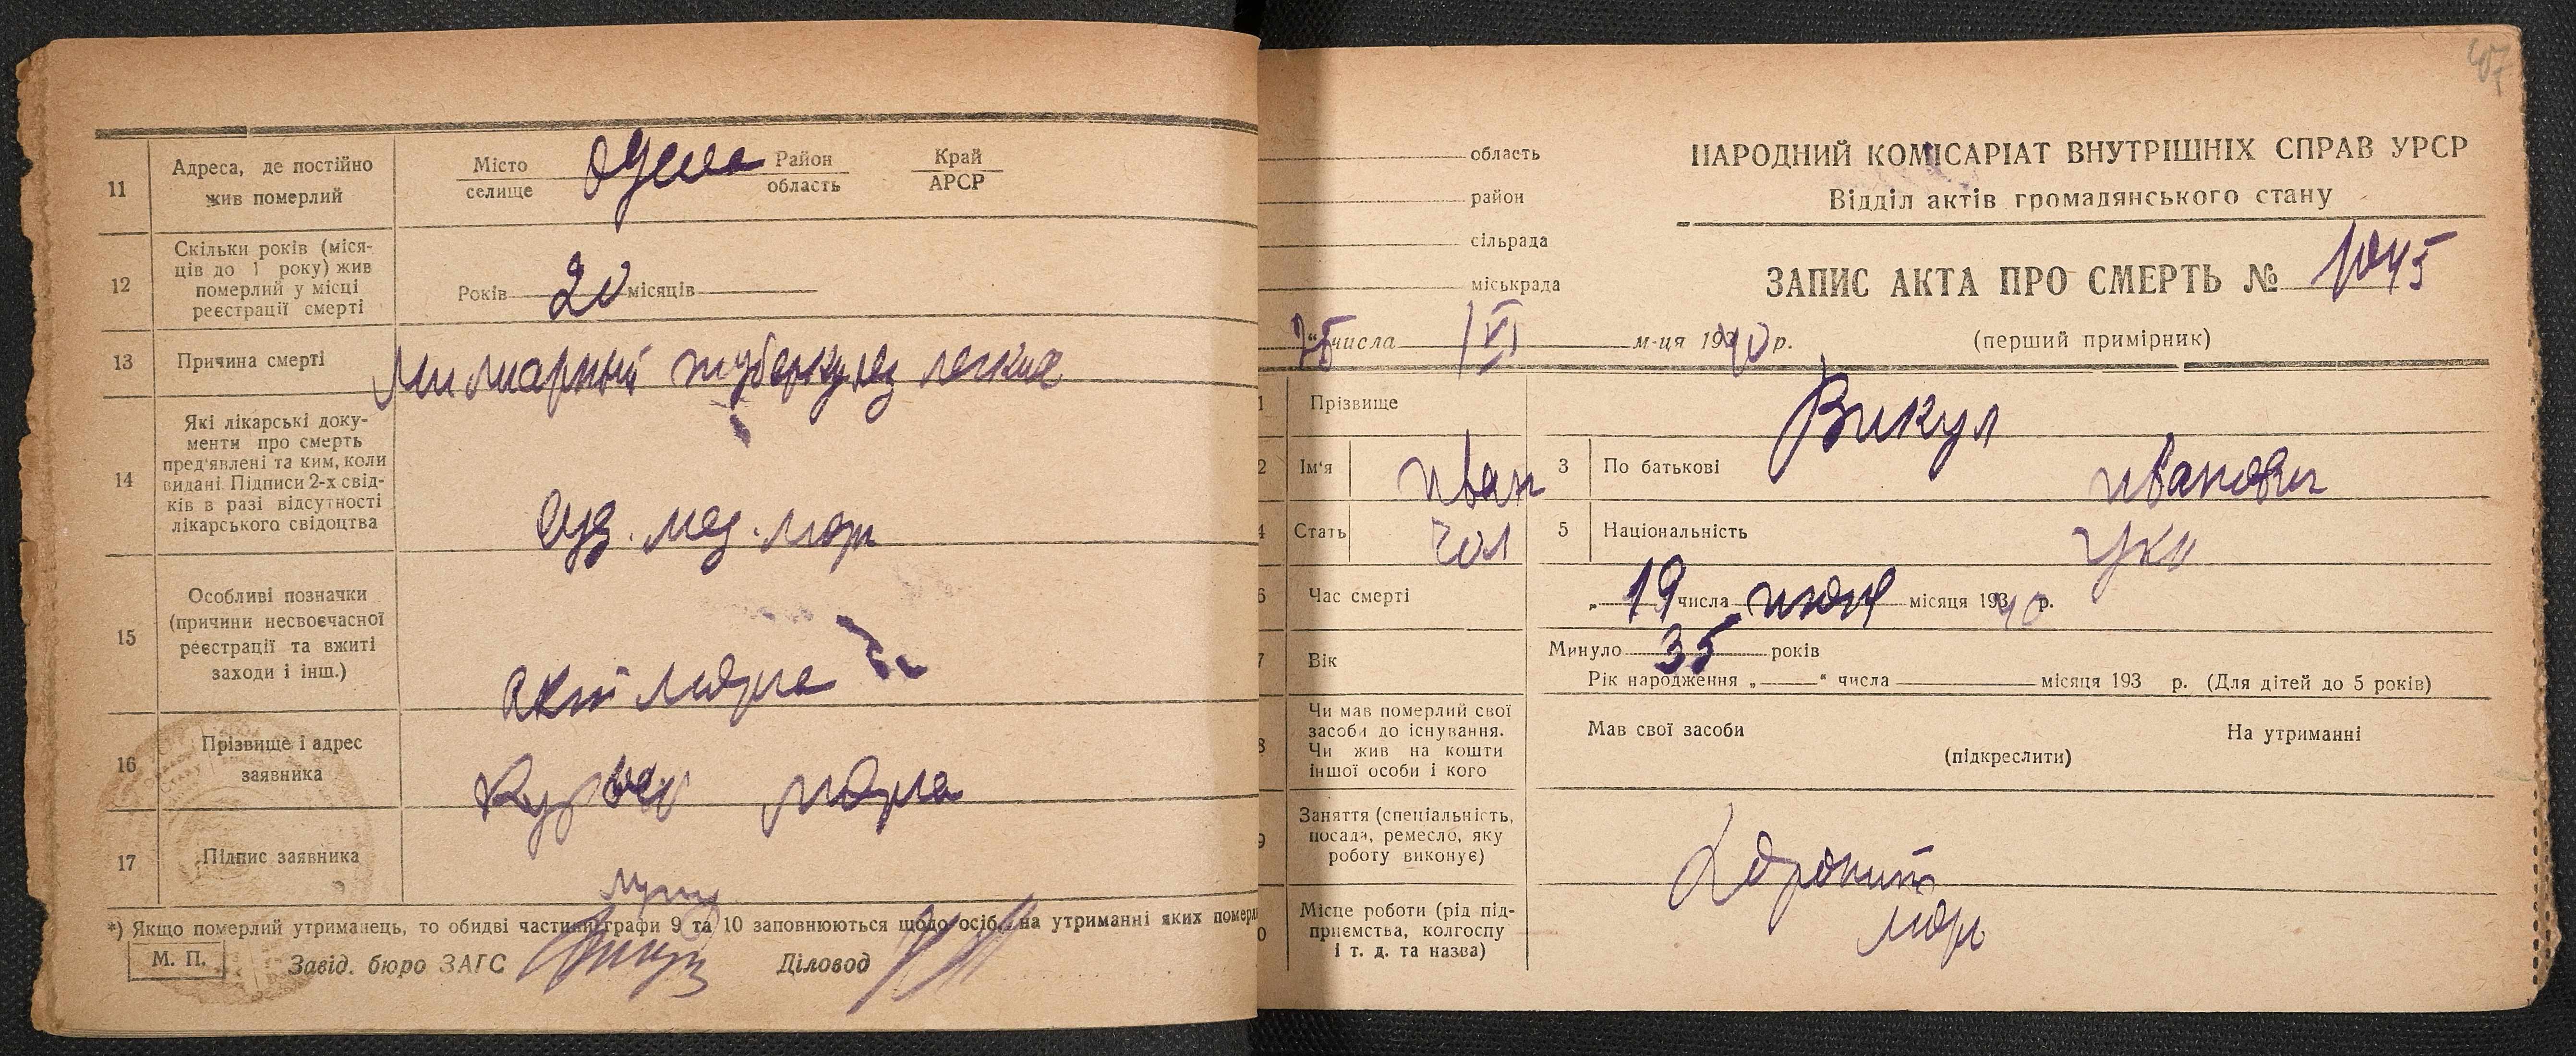 11 Адреса, де постійно жив померлий
Місто селище Одесса Район область Край АРСР
12 Скільки років (місяців до 1 року) жив померлий у місці реєстрації смерті
Років 20 місяців
13 Причина смерті Милиарный туберкулез легких
14 Які лікарські доку-
менти про смерть
пред'явлені та ким, коли
видані. Підписи 2-х свід-
ків в разі відсутності
лікарського свідоцтва
Суд. мед. морг
15 Особливі позначки
(причини несвоєчасної
реєстрації та вжиті
заходи і інш.)
Акт морга
16 Прізвище і адрес
заявника
Курьер морга
17 Підпис заявника
*) Якщо померлий утриманець, то обидві частини графи 9 та 10 заповнюються щодо особи на утриманні яких
М. П. Завід. бюро ЗАГС Діловод
область
район
сільрада
міськрада
НАРОДНИЙ КОМІСАРІАТ ВНУТРІШНІХ СПРАВ УРСР
Відділ актів громадянського стану
ЗАПИС АКТА ПРО СМЕРТЬ № 1045
числа VI м-ця 1940 р. (перший примірник)
1 Прізвище Викул
2 Ім'я Иван 3 По батькові Иванович
4 Стать Чол 5 Національність Укр
6 Час смерті „ 19 числа июня місяця 1940 р.
7 Вік Минуло 35 років
Рік народження „ “ числа місяця 193 р. (Для дітей до 5 років)
8 Чи мав померлий свої
засоби до існування.
Чи жив на кошти
іншої особи і кого
Мав свої засоби На утриманні
(підкреслити)
9 Заняття (спеціальність,
посада, ремесло, яку
роботу виконує)
10 Місце роботи (рід під-
приємства, колгоспу
і т. д. та назва)
морг